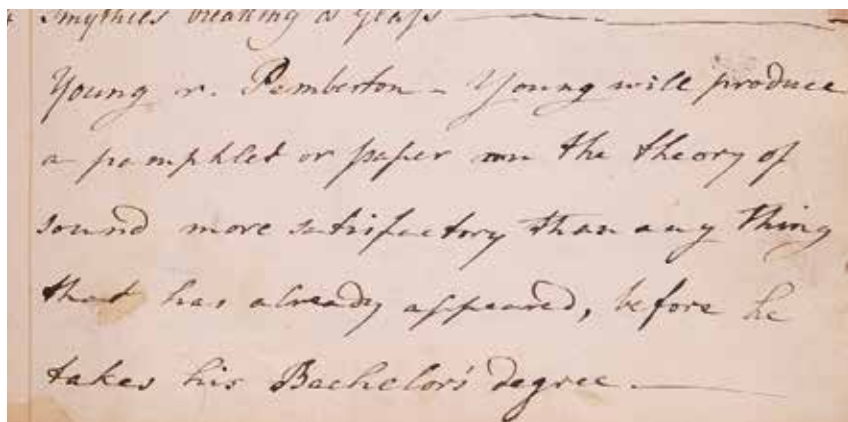 Smythies breaking a glass
Young v. Pemberton - Young will produce
a pamphlet or paper on the theory of
sound more satisfactory than any thing
that has already appeared, before he
takes his Bachelor's degree.